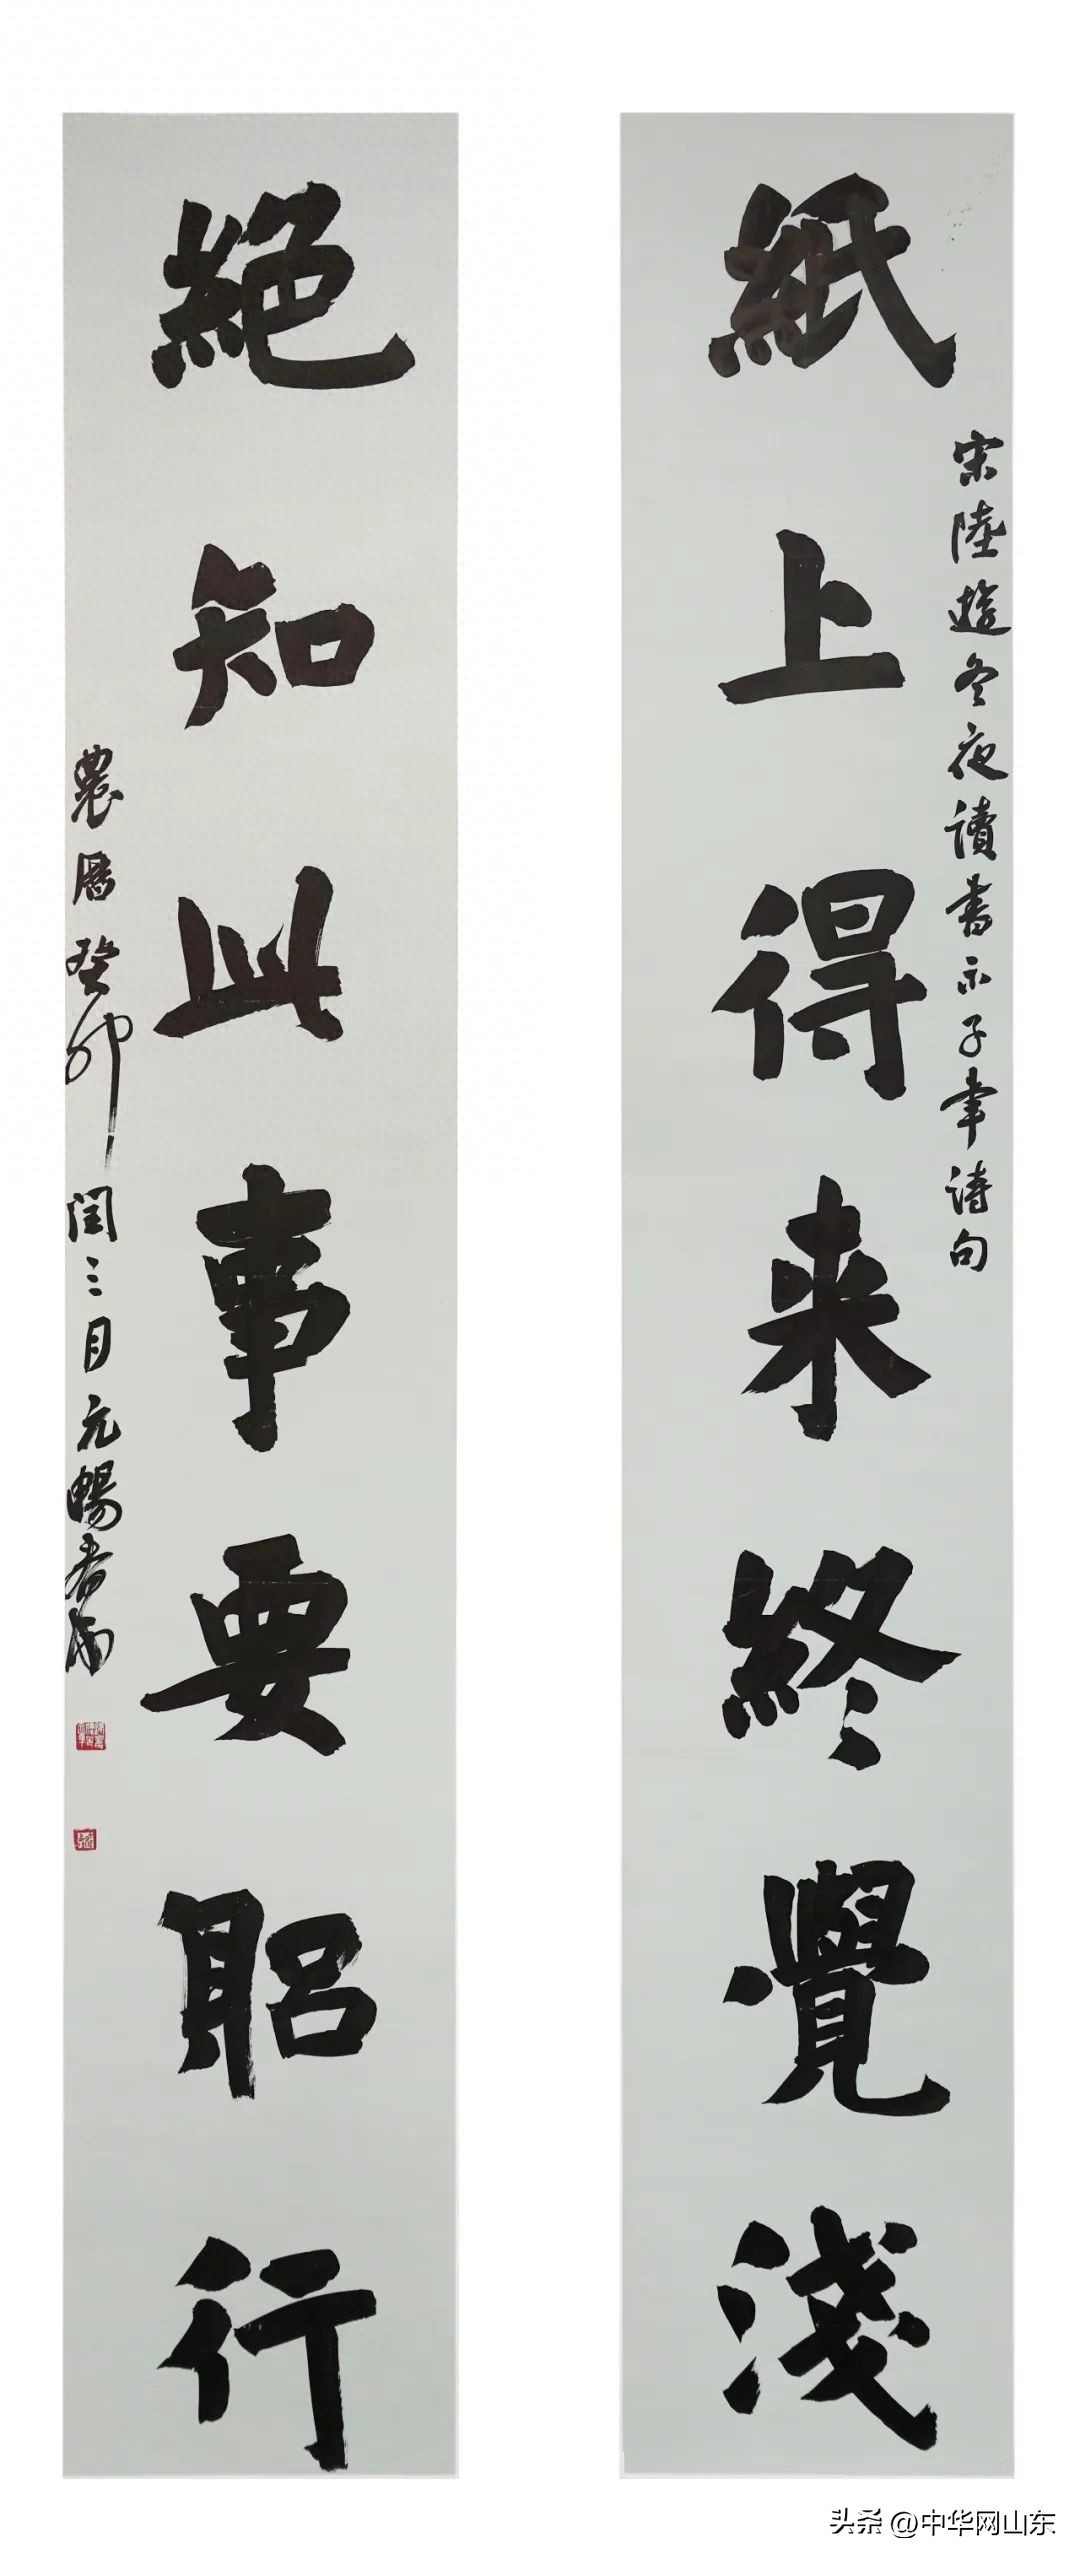 紙上得来終覺淺
宋陸遊冬夜讀書示子聿詩句
絕知此事要躳行
農曆癸卯閏三月元暢
头条 @中华网山东